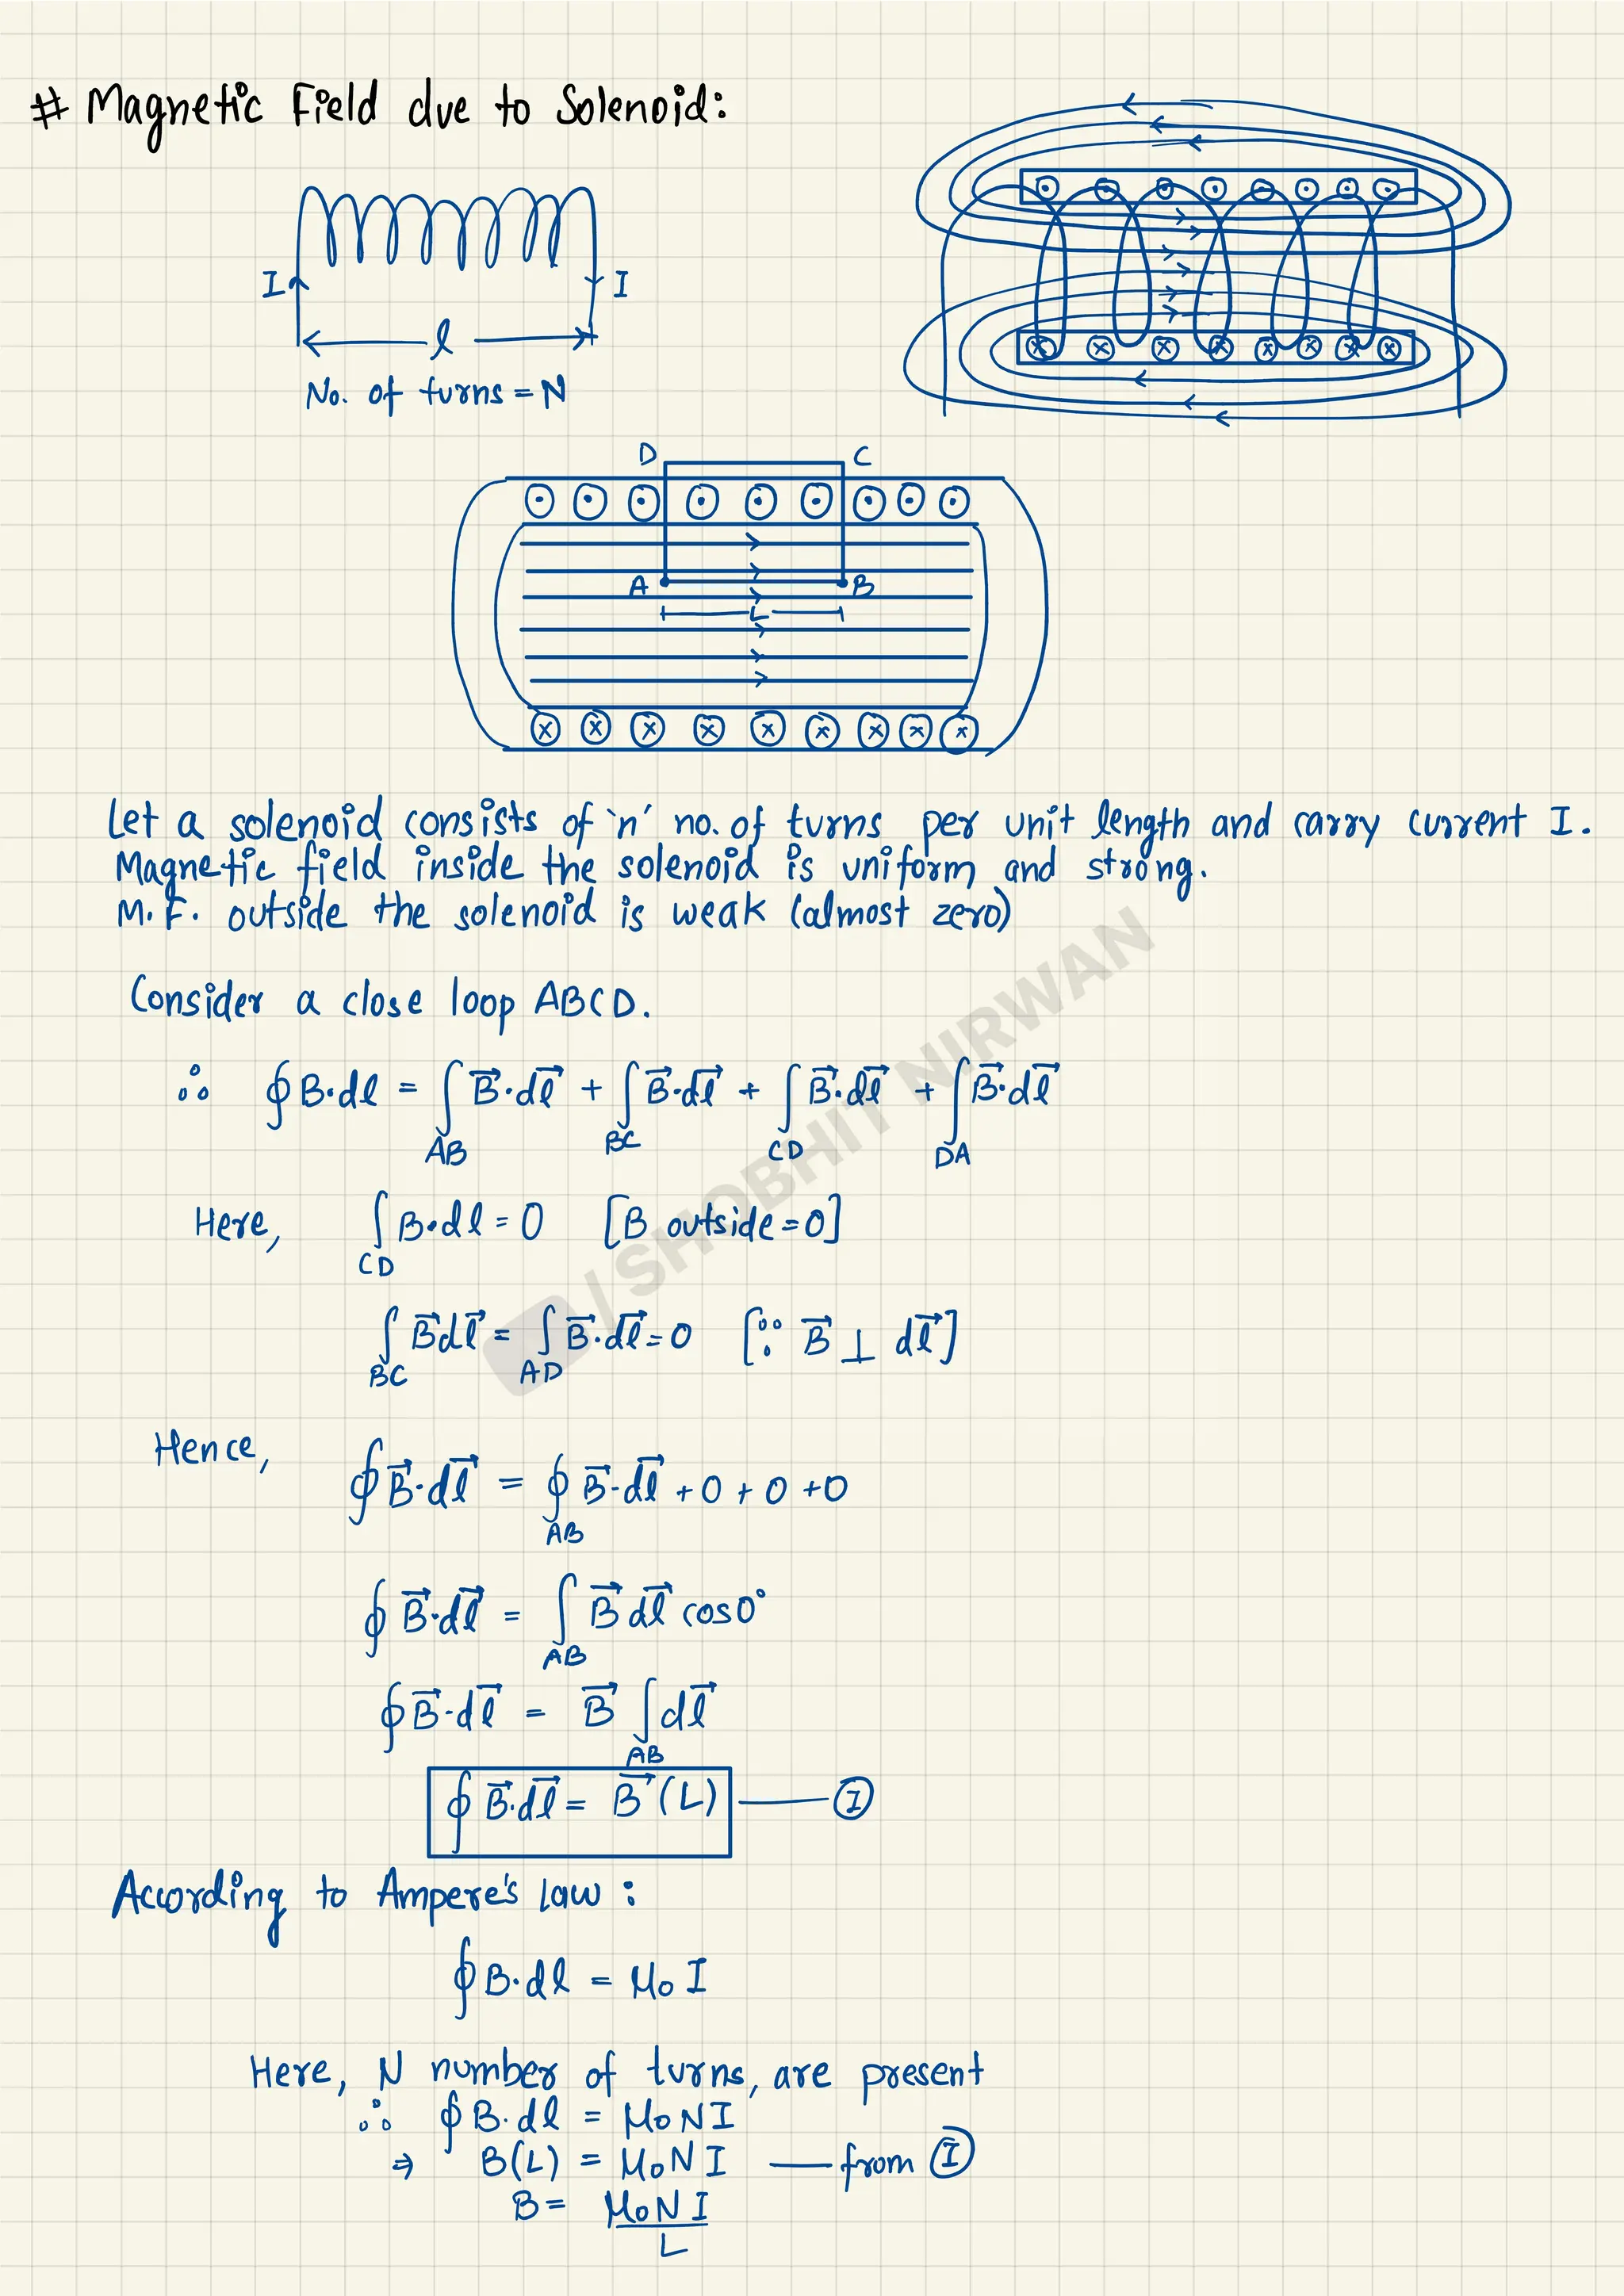 # Magnetic Field due to Solenoid:
I I
l
No. of turns = N
D C
A B
L
Let a solenoid consists of 'n' no. of turns per unit length and carry current I.
Magnetic field inside the solenoid is uniform and strong.
M.F. outside the solenoid is weak (almost zero)
Consider a close loop ABCD.
∴ ∮B·dl = ∫_AB B⃗·dl⃗ + ∫_BC B⃗·dl⃗ + ∫_CD B⃗·dl⃗ + ∫_DA B⃗·dl⃗
Here, ∫_CD B·dl = 0 [B outside = 0]
∫_BC B⃗dl⃗ = ∫_AD B⃗·dl⃗ = 0 [∵ B⃗ ⊥ dl⃗]
Hence, ∮B⃗·dl⃗ = ∮_AB B⃗·dl⃗ + 0 + 0 + 0
∮B⃗·dl⃗ = ∫_AB B⃗ dl⃗ cos0°
∮B⃗·dl⃗ = B⃗ ∫_AB dl⃗
∮B⃗·dl⃗ = B⃗ (L) —— Ⓘ
According to Ampere's Law :
∮B·dl = μ₀ I
Here, N number of turns, are present
∴ ∮B·dl = μ₀NI
⇒ B(L) = μ₀NI —— from Ⓘ
B = μ₀NI / L
/SHOBHIT NIRWAN